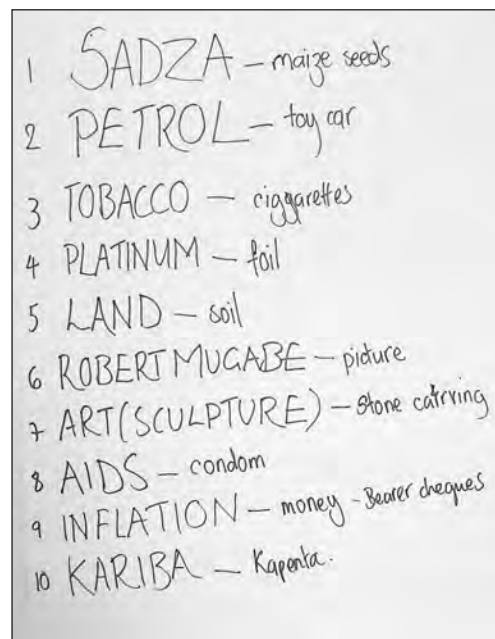 1 SADZA - maize seeds
2 PETROL - toy car
3 TOBACCO - ciggarettes
4 PLATINUM - foil
5 LAND - soil
6 ROBERT MUGABE - picture
7 ART (SCULPTURE) - Stone catrving
8 AIDS - condom
9 INFLATION - money - Bearer cheques
10 KARIBA - Kapenta.